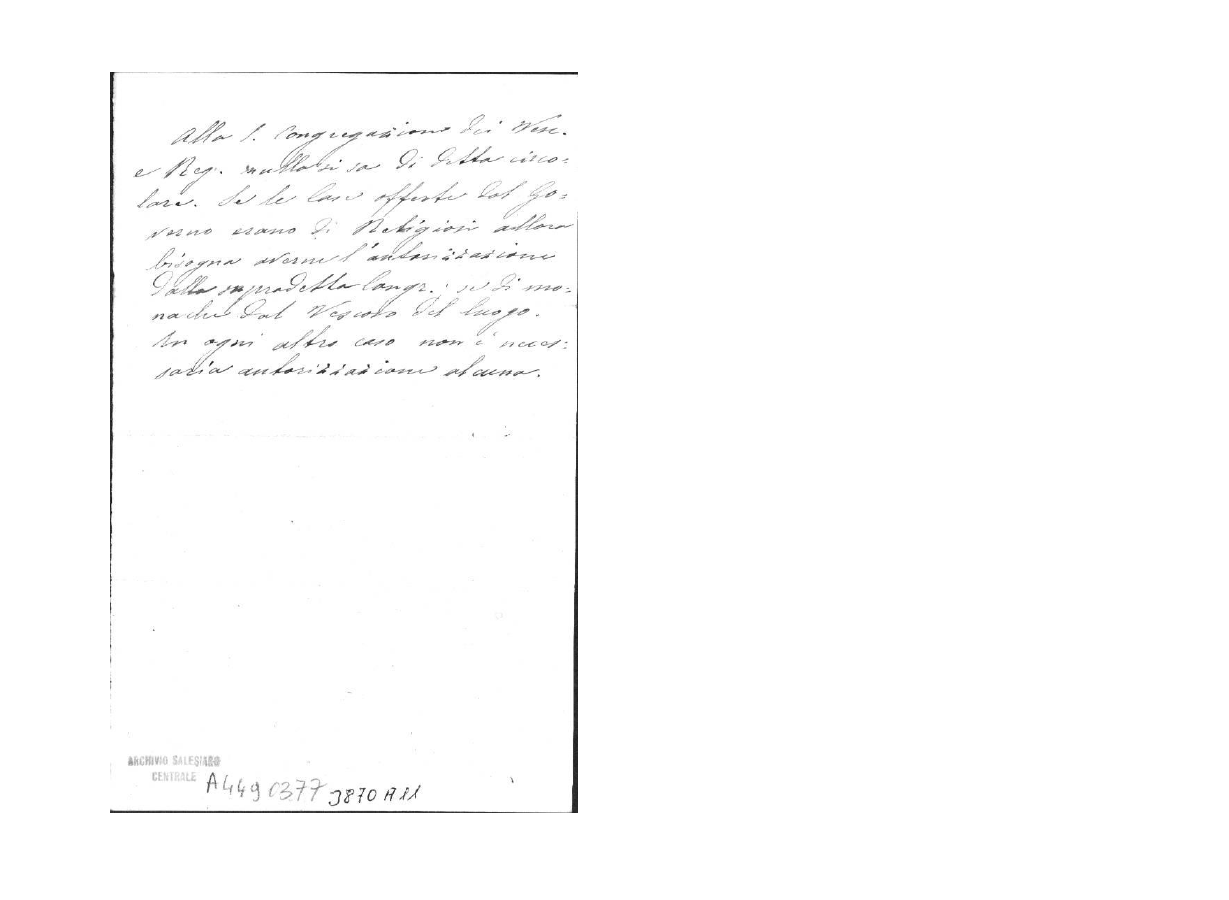 Alla S. Congregazione dei Vesc.
e Reg. nulla si sa di detta circo=
lare. Se le Case offerte dal Go=
verno erano di Religiosi allora
bisogna averne l'autorizzazione
dalla sopradetta Congr.: se di mo=
nache dal Vescovo del luogo.
In ogni altro caso non è neces=
saria autorizzazione alcuna.
ARCHIVIO SALESIANO
CENTRALE
A4490377 3870 A11